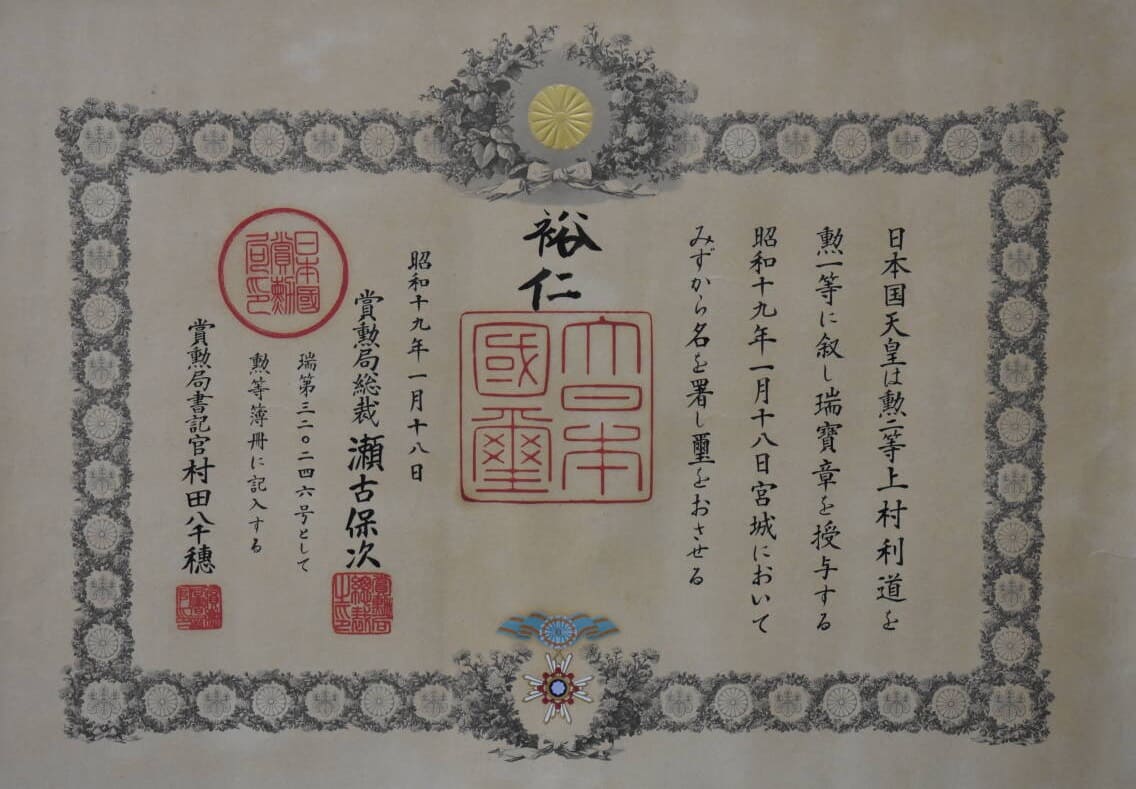 日本国天皇は勲二等上村利道を
勲一等に叙し瑞寶章を授与する
昭和十九年一月十八日宮城において
みずから名を署し璽をおさせる
裕仁
大日本國璽
昭和十九年一月十八日
賞勲局総裁瀬古保次
瑞第三二〇二四六号として
勲等簿冊に記入する
賞勲局書記官村田八千穂
日本國賞勲局印